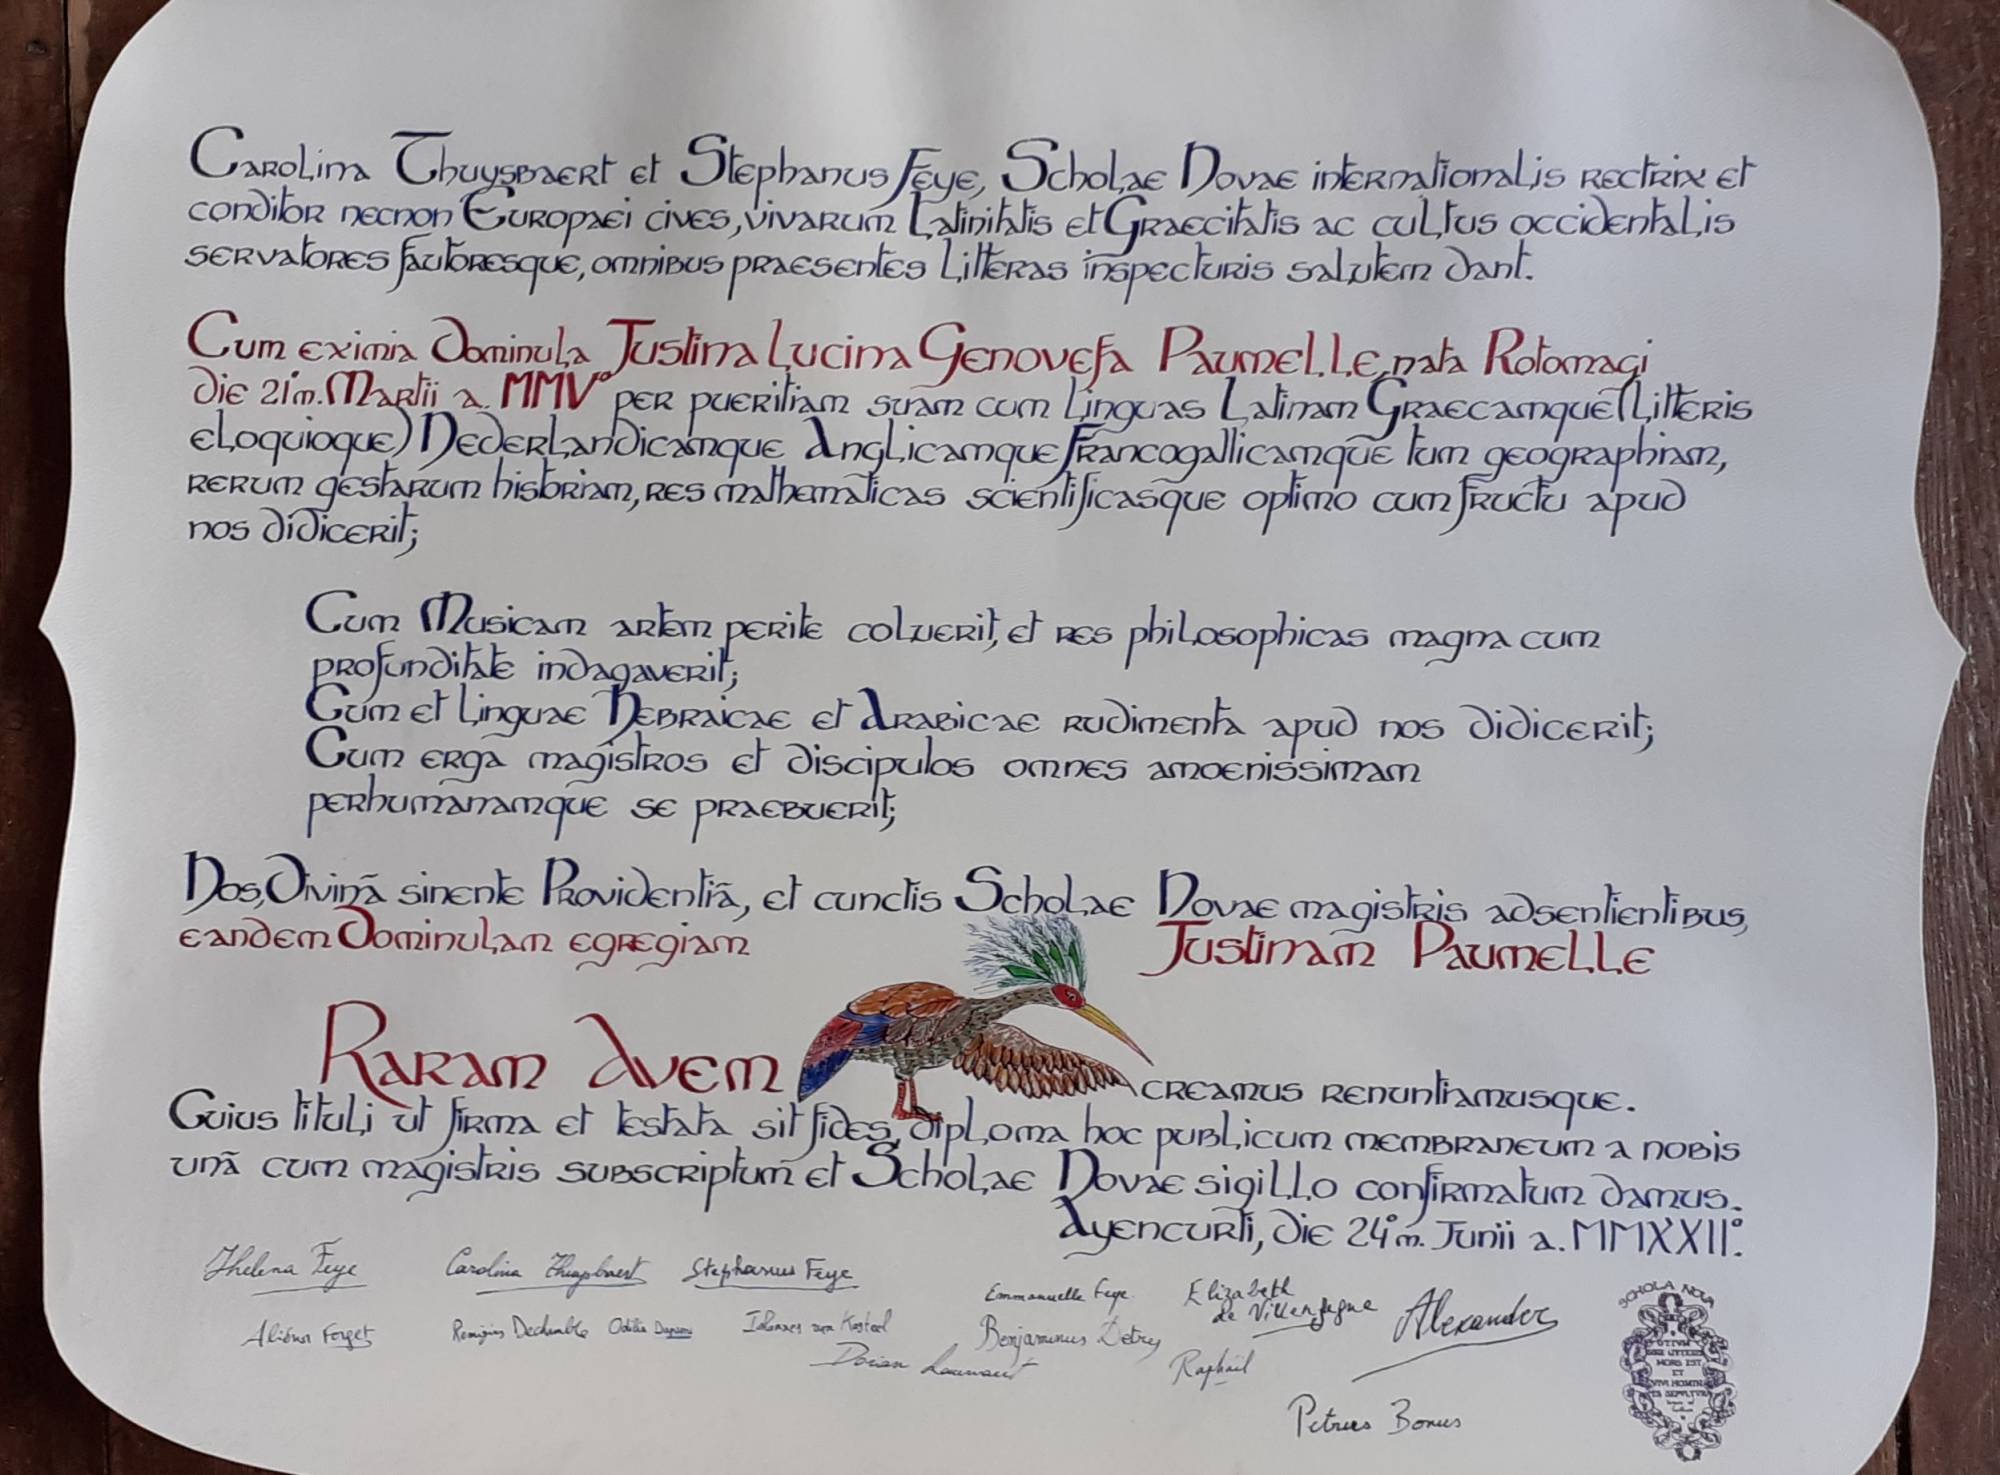 Carolina Thuysbaert et Stephanus Feye, Scholae Novae internationalis rectrix et
conditor necnon Europaei cives, vivarum Latinitatis et Graecitatis ac cultus occidentalis
servatores fautoresque, omnibus praesentes litteras inspecturis salutem dant.
Cum eximia Dominula Justina Lucina Genovefa Paumelle, nata Rotomagi
die 21ª m. Martii a. MMVº per pueritiam suam cum linguas Latinam Graecamque (litteris
eloquioque) Nederlandicamque Anglicamque Francogallicamque tum geographiam,
rerum gestarum historiam, res mathematicas scientificasque optimo cum fructu apud
nos didicerit;
Cum Musicam artem perite coluerit, et res philosophicas magna cum
profunditate indagaverit;
Cum et linguae Hebraicae et Arabicae rudimenta apud nos didicerit;
Cum erga magistros et discipulos omnes amoenissimam
perhumanamque se praebuerit;
Nos, Divinā sinente Providentiā, et cunctis Scholae Novae magistris adsentientibus,
eandem Dominulam egregiam Justinam Paumelle
Raram Avem creamus renuntiamusque.
Cuius tituli ut firma et testata sit fides, diploma hoc publicum membraneum a nobis
unā cum magistris subscriptum et Scholae Novae sigillo confirmatum damus.
Ayencurti, die 24º m. Junii a. MMXXIIº.
Helena Feye Carolina Thuysbaert Stephanus Feye Emmanuelle Feye Elizabeth
de Villenfagne Alexander
Aliénor Forget Remigius Odilia Iohannes van Kasteel Benjaminus Detrey
Dorian Raphaël
Petrus Bonus
SCHOLA NOVA
OTIUM
SINE LITTERIS
MORS EST
ET
VIVI HOMIN
IS SEPULTUR